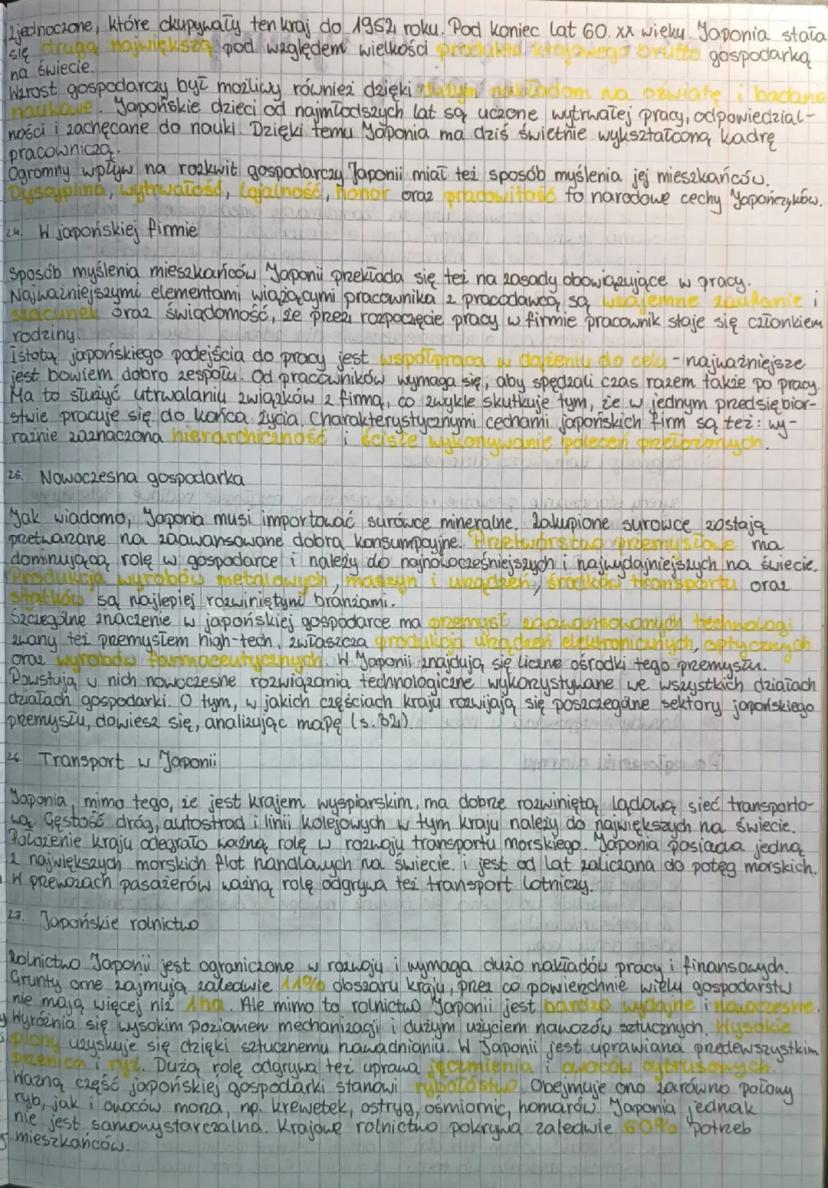 zjednoczone, które okupywały ten kraj do 1952 roku. Pod koniec lat 60. XX wieku Japonia stała
się drugą największą pod względem wielkości produktu krajowego brutto gospodarką
na świecie.
Wzrost gospodarczy był możliwy również dzięki dużym nakładom na oświatę i badana
naukowe. Japońskie dzieci od najmłodszych lat są uczone wytrwałej pracy, odpowiedzial-
ności i zachęcane do nauki. Dzięki temu Japonia ma dziś świetnie wykształconą kadrę
pracowniczą.
Ogromny wpływ na rozkwit gospodarczy Japonii miał też sposób myślenia jej mieszkańców.
Dyscyplina, wytrwałość, lojalność, honor oraz pracowitość to narodowe cechy Japończyków.
24. W japońskiej firmie
Sposób myślenia mieszkańców Japonii przekłada się też na zasady obowiązujące w pracy.
Najważniejszymi elementami wiążącymi pracownika z pracodawcą są wzajemne zaufanie i
szacunek oraz świadomość, że przez rozpoczęcie pracy w firmie pracownik staje się członkiem
rodziny.
Istotą japońskiego podejścia do pracy jest współpraca w dążeniu do celu - najważniejsze
jest bowiem dobro zespołu. Od pracowników wymaga się, aby spędzali czas razem także po pracy.
Ma to służyć utrwalaniu związków z firmą, co zwykle skutkuje tym, że w jednym przedsiębior-
stwie pracuje się do końca życia. Charakterystycznymi cechami japońskich firm są też: wy-
raźnie zaznaczona hierarchiczność i ściste wykonywanie poleceń przełożonych.
25. Nowoczesna gospodarka
Jak wiadomo, Japonia musi importować surowce mineralne. Zakupione surowce zostają
przetwarzane na zaawansowane dobra konsumpcyjne. Przetwórstwo przemysłowe ma
dominującą rolę w gospodarce i należy do najnowocześniejszych i najwydajniejszych na świecie.
Produkcja wyrobów metalowych, maszyn i urządzeń, środków transportu oraz
statków są najlepiej rozwiniętymi branżami.
Szczególne znaczenie w japońskiej gospodarce ma przemysł zaawansowanych technologi
zwany też przemysłem high-tech, zwłaszcza produkcja urządzeń elektronicznych, optycznych
oraz wyrobów farmaceutycznych. W Japonii znajdują się liczne ośrodki tego przemysłu.
Powstają w nich nowoczesne rozwiązania technologiczne wykorzystywane we wszystkich działach
działach gospodarki. O tym, w jakich częściach kraju rozwijają się poszczególne sektory japońskiego
przemysłu, dowiesz się, analizując mapę (s. 82).
26. Transport w Japonii
Japonia, mimo tego, że jest krajem wyspiarskim, ma dobrze rozwiniętą lądową sieć transporto-
wą. Gęstość dróg, autostrad i linii kolejowych w tym kraju należy do największych na świecie.
Położenie kraju odegrało ważną rolę w rozwoju transportu morskiego. Japonia posiada jedną
z największych morskich flot handlowych na świecie i jest od lat zaliczana do potęg morskich.
W przewozach pasażerów ważną rolę odgrywa też transport lotniczy.
27. Japońskie rolnictwo
Rolnictwo Japonii jest ograniczone w rozwoju i wymaga dużo nakładów pracy i finansowych.
Grunty orne zajmują zaledwie 11% obszaru kraju, przez co powierzchnie wielu gospodarstw
nie mają więcej niż 1ha. Ale mimo to rolnictwo Japonii jest bardzo wydajne i nowoczesne.
Wyróżnia się wysokim poziomem mechanizacji i dużym użyciem nawozów sztucznych. Wysokie
plony uzyskuje się dzięki sztucznemu nawadnianiu. W Japonii jest uprawiana przedewszystkim
pszenica i ryż. Dużą rolę odgrywa też uprawa jęczmienia i owoców cytrusowych.
Ważną część japońskiej gospodarki stanowi rybołóstwo. Obejmuje ono zarówno połowy
ryb, jak i owoców morza, np. krewetek, ostryg, ośmiornic, homarów. Japonia jednak
nie jest samowystarczalna. Krajowe rolnictwo pokrywa zaledwie 60% potrzeb
mieszkańców.